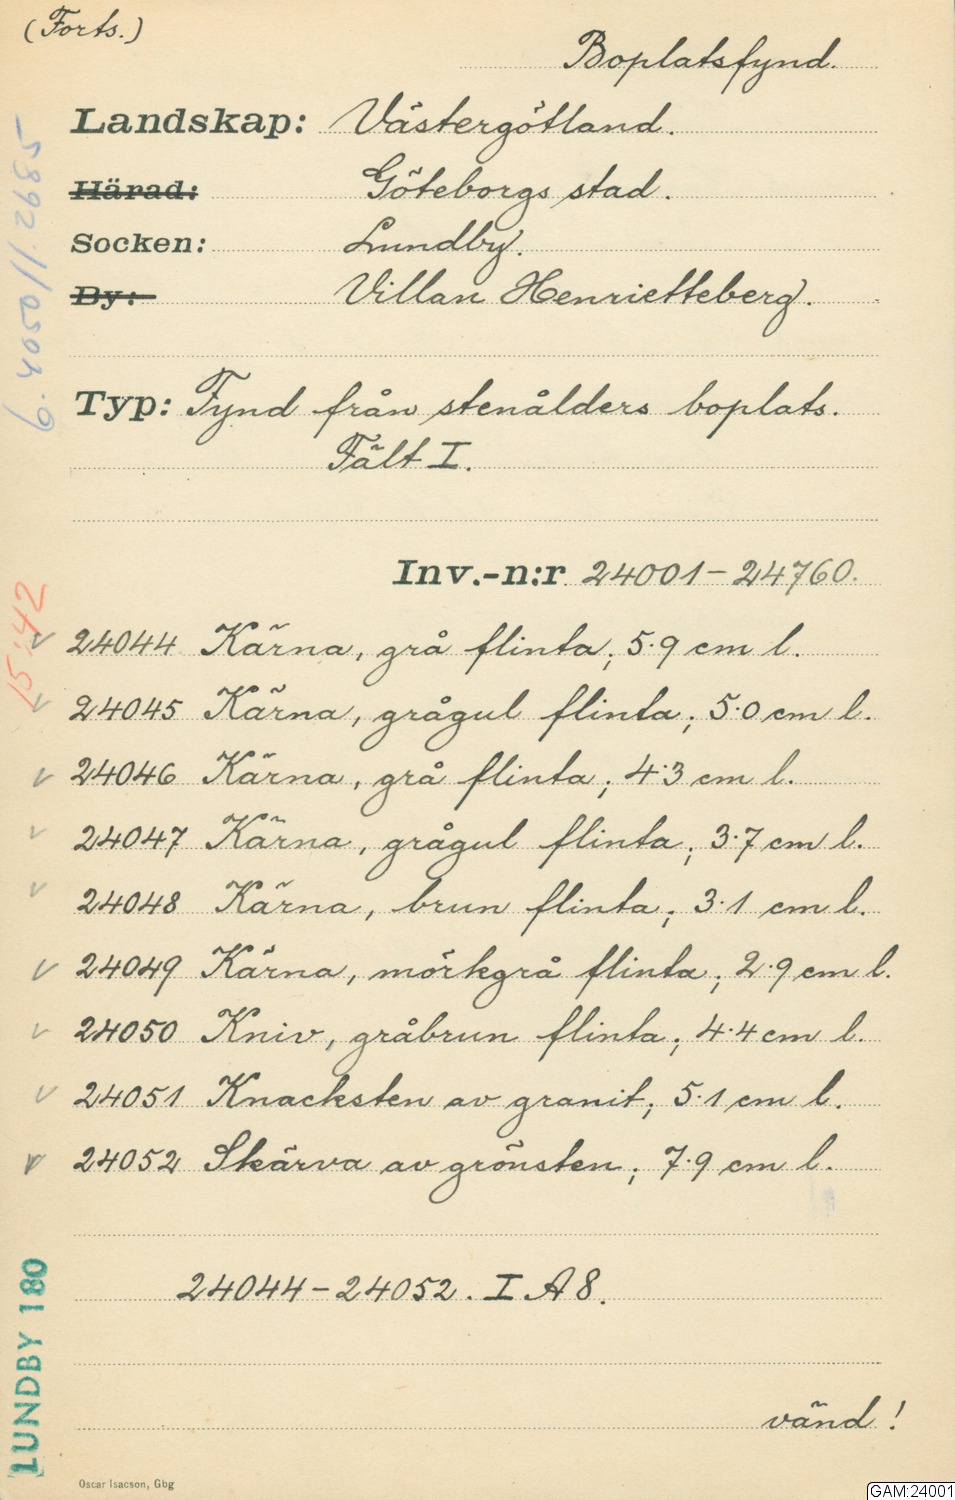 (Forts.)
Boplatsfynd.
Landskap: Västergötland.
Härad: Göteborgs stad.
Socken: Lundby.
By: Villan Henrietteberg.
Typ: Fynd från stenålders boplats.
Fält I.
Inv.-n:r 24001-24760.
24044 Kärna, grå flinta; 5·9 cm l.
24045 Kärna, grågul flinta; 5·0 cm l.
24046 Kärna, grå flinta; 4·3 cm l.
24047 Kärna, grågul flinta; 3·7 cm l.
24048 Kärna, brun flinta; 3·1 cm l.
24049 Kärna, mörkgrå flinta; 2·9 cm l.
24050 Kniv, gråbrun flinta; 4·4 cm l.
24051 Knacksten av granit; 5·1 cm l.
24052 Skärva av grönsten; 7·9 cm l.
24044-24052. I A 8.
vänd!
15:42
LUNDBY 180
Oscar Isacson, Gbg
GAM:24001